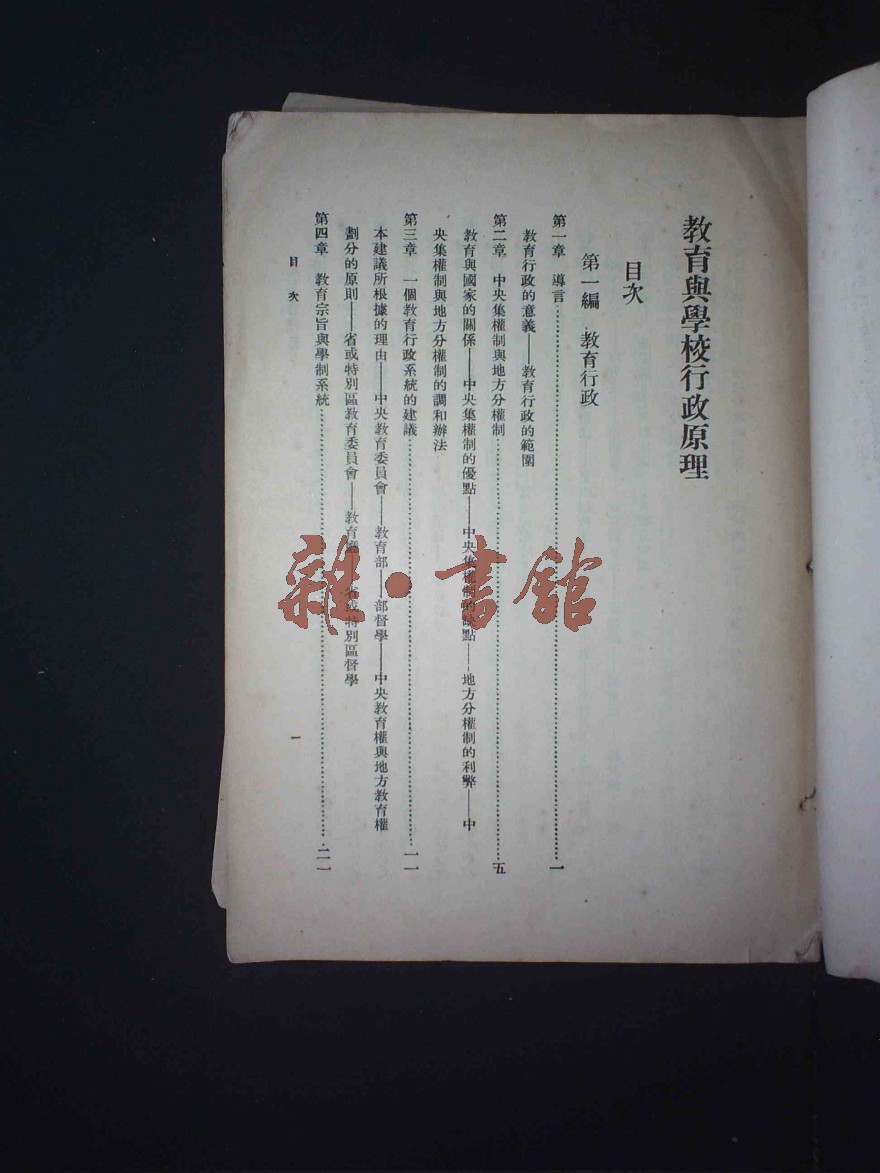 教育與學校行政原理
目次
第一編 教育行政
第一章 導言……一
教育行政的意義——教育行政的範圍
第二章 中央集權制與地方分權制……五
教育與國家的關係——中央集權制的優點——中央集權制的缺點——地方分權制的利弊——中
央集權制與地方分權制的調和辦法
第三章 一個教育行政系統的建議……一一
本建議所根據的理由——中央教育委員會——教育部——部督學——中央教育權與地方教育權
劃分的原則——省或特別區教育委員會——教育廳——省或特別區督學
第四章 教育宗旨與學制系統……二一
目次
一
雜·書館